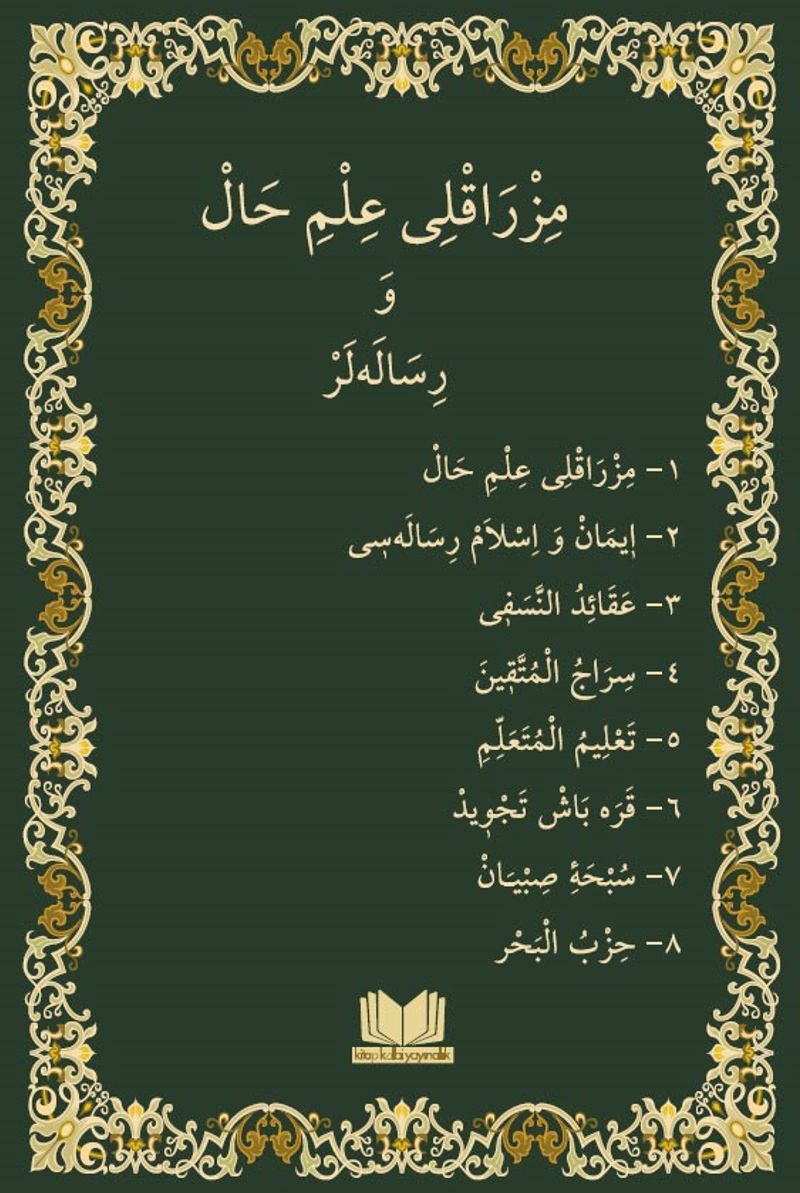 مِزْرَاقْلِى عِلْمِ حَالْ
وَ
رِسَالَەلَرْ
١- مِزْرَاقْلِى عِلْمِ حَالْ
٢- اٖيمَانْ وَ اِسْلاَمْ رِسَالَەسٖى
٣- عَقَائِدُ النَّسَفٖى
٤- سِرَاجُ الْمُتَّقٖينَ
٥- تَعْلِيمُ الْمُتَعَلِّمِ
٦- قَرَه بَاشْ تَجْوٖيدْ
٧- سُبْحَۀِ صِبْيَانْ
٨- حِزْبُ الْبَحْر
kitap kalbi yayıncılık